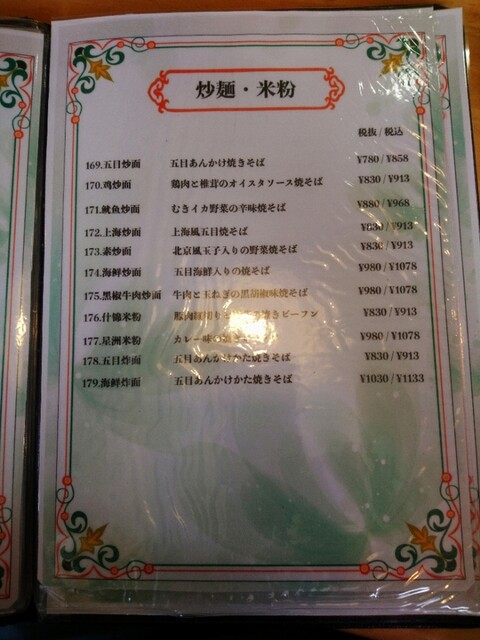 炒麺・米粉
税抜 / 税込
169.五目炒面 五目あんかけ焼きそば ¥780 / ¥858
170.鸡炒面 鶏肉と椎茸のオイスタソース焼そば ¥830 / ¥913
171.鱿鱼炒面 むきイカ野菜の辛味焼そば ¥880 / ¥968
172.上海炒面 上海風五目焼そば ¥830 / ¥913
173.素炒面 北京風玉子入りの野菜焼そば ¥830 / ¥913
174.海鲜炒面 五目海鮮入りの焼そば ¥980 / ¥1078
175.黑椒牛肉炒面 牛肉と玉ねぎの黒胡椒味焼そば ¥980 / ¥1078
176.什锦米粉 豚肉細切り 焼きビーフン ¥830 / ¥913
177.星洲米粉 カレー味の ¥980 / ¥1078
178.五目炸面 五目あんかけかた焼きそば ¥830 / ¥913
179.海鲜炸面 五目あんかけかた焼きそば ¥1030 / ¥1133